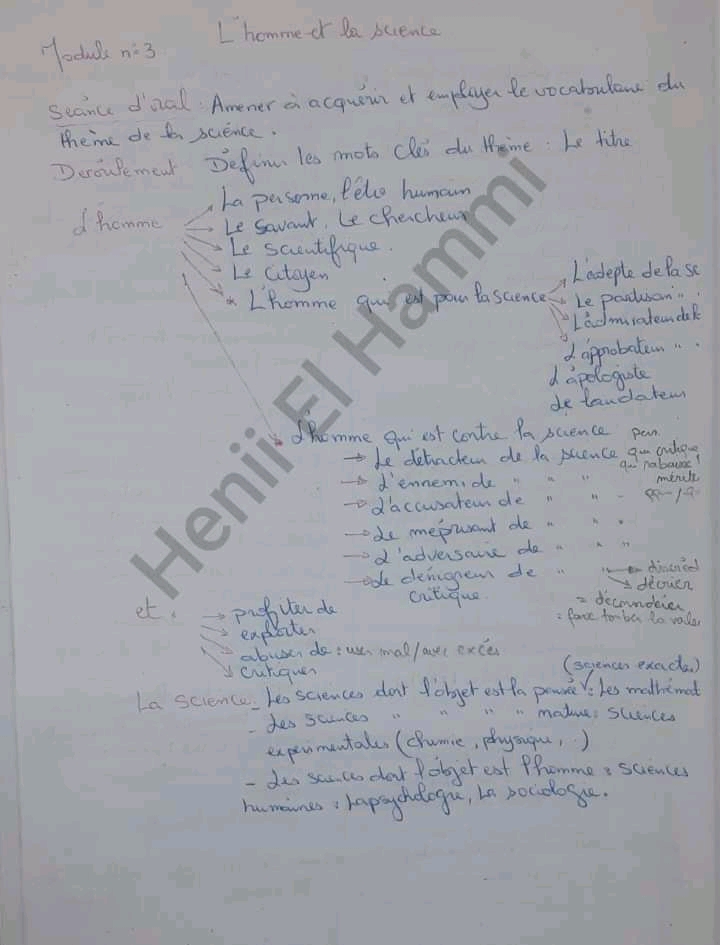 L'homme et la science
Module n°3
Séance d'oral : Amener à acquérir et employer le vocabulaire du
thème de la science.
Déroulement Définir les mots clés du thème : Le titre
L'homme
La personne, l'être humain
Le savant, Le chercheur
Le scientifique.
Le citoyen
* L'homme qui est pour la science
L'adepte de la sc
Le partisan " "
L'admirateur de la
L'approbateur " "
L'apologiste
Le laudateur
L'homme qui est contre la science
→ Le détracteur de la science qui critique
qui rabaisse
mérite
→ L'ennemi de " "
→ L'accusateur de " "
→ Le méprisant de " "
→ L'adversaire de " " "
→ Le dénigreur de " "
critique.
discréd
décrier
= déconsidérer
= faire tomber la vale
et : → profiter de
→ exploiter
→ abuser de : user mal/avec excès
→ critiquer
(sciences exactes)
La science - Les sciences dont l'objet est la pensée : Les mathémat
- Les sciences " " " " matière : sciences
expérimentales (chimie, physique, ..)
- Les sciences dont l'objet est l'homme : sciences
humaines : La psychologie, La sociologie.
Henii El Hammi